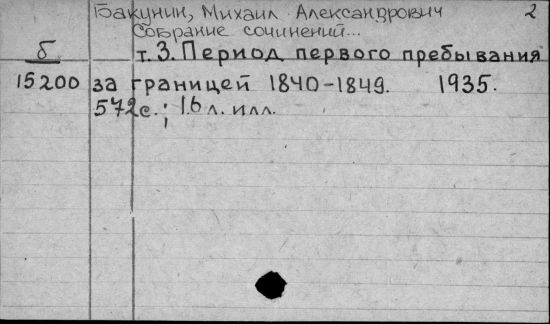 Бакунин, Михаил Александрович 2
Собрание сочинений...
б т. 3. Период первого пребывания
15200 за границей 1840-1849. 1935.
572с.; 16 л. илл.